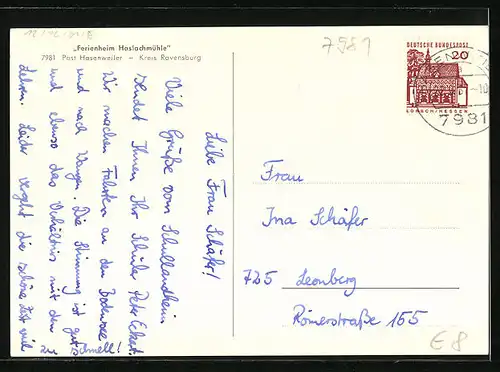 „Ferienheim Haslachmühle"
7981 Post Hasenweiler — Kreis Ravensburg
7981
DEUTSCHE BUNDESPOST
20
LORSCH/HESSEN
7981
Liebe Frau Schäfer!
Viele Grüße vom Schullandheim
sendet Ihnen Ihr Schüler Peter Eckert.
Wir machen Fahrten an den Bodensee
und nach Wangen. Die Stimmung ist gut
und ebenso das Verhältnis mit den
Lehrern. Leider vergeht die schöne Zeit viel
zu schnell!
Frau
Ina Schäfer
725 Leonberg
Römerstraße 155
€8